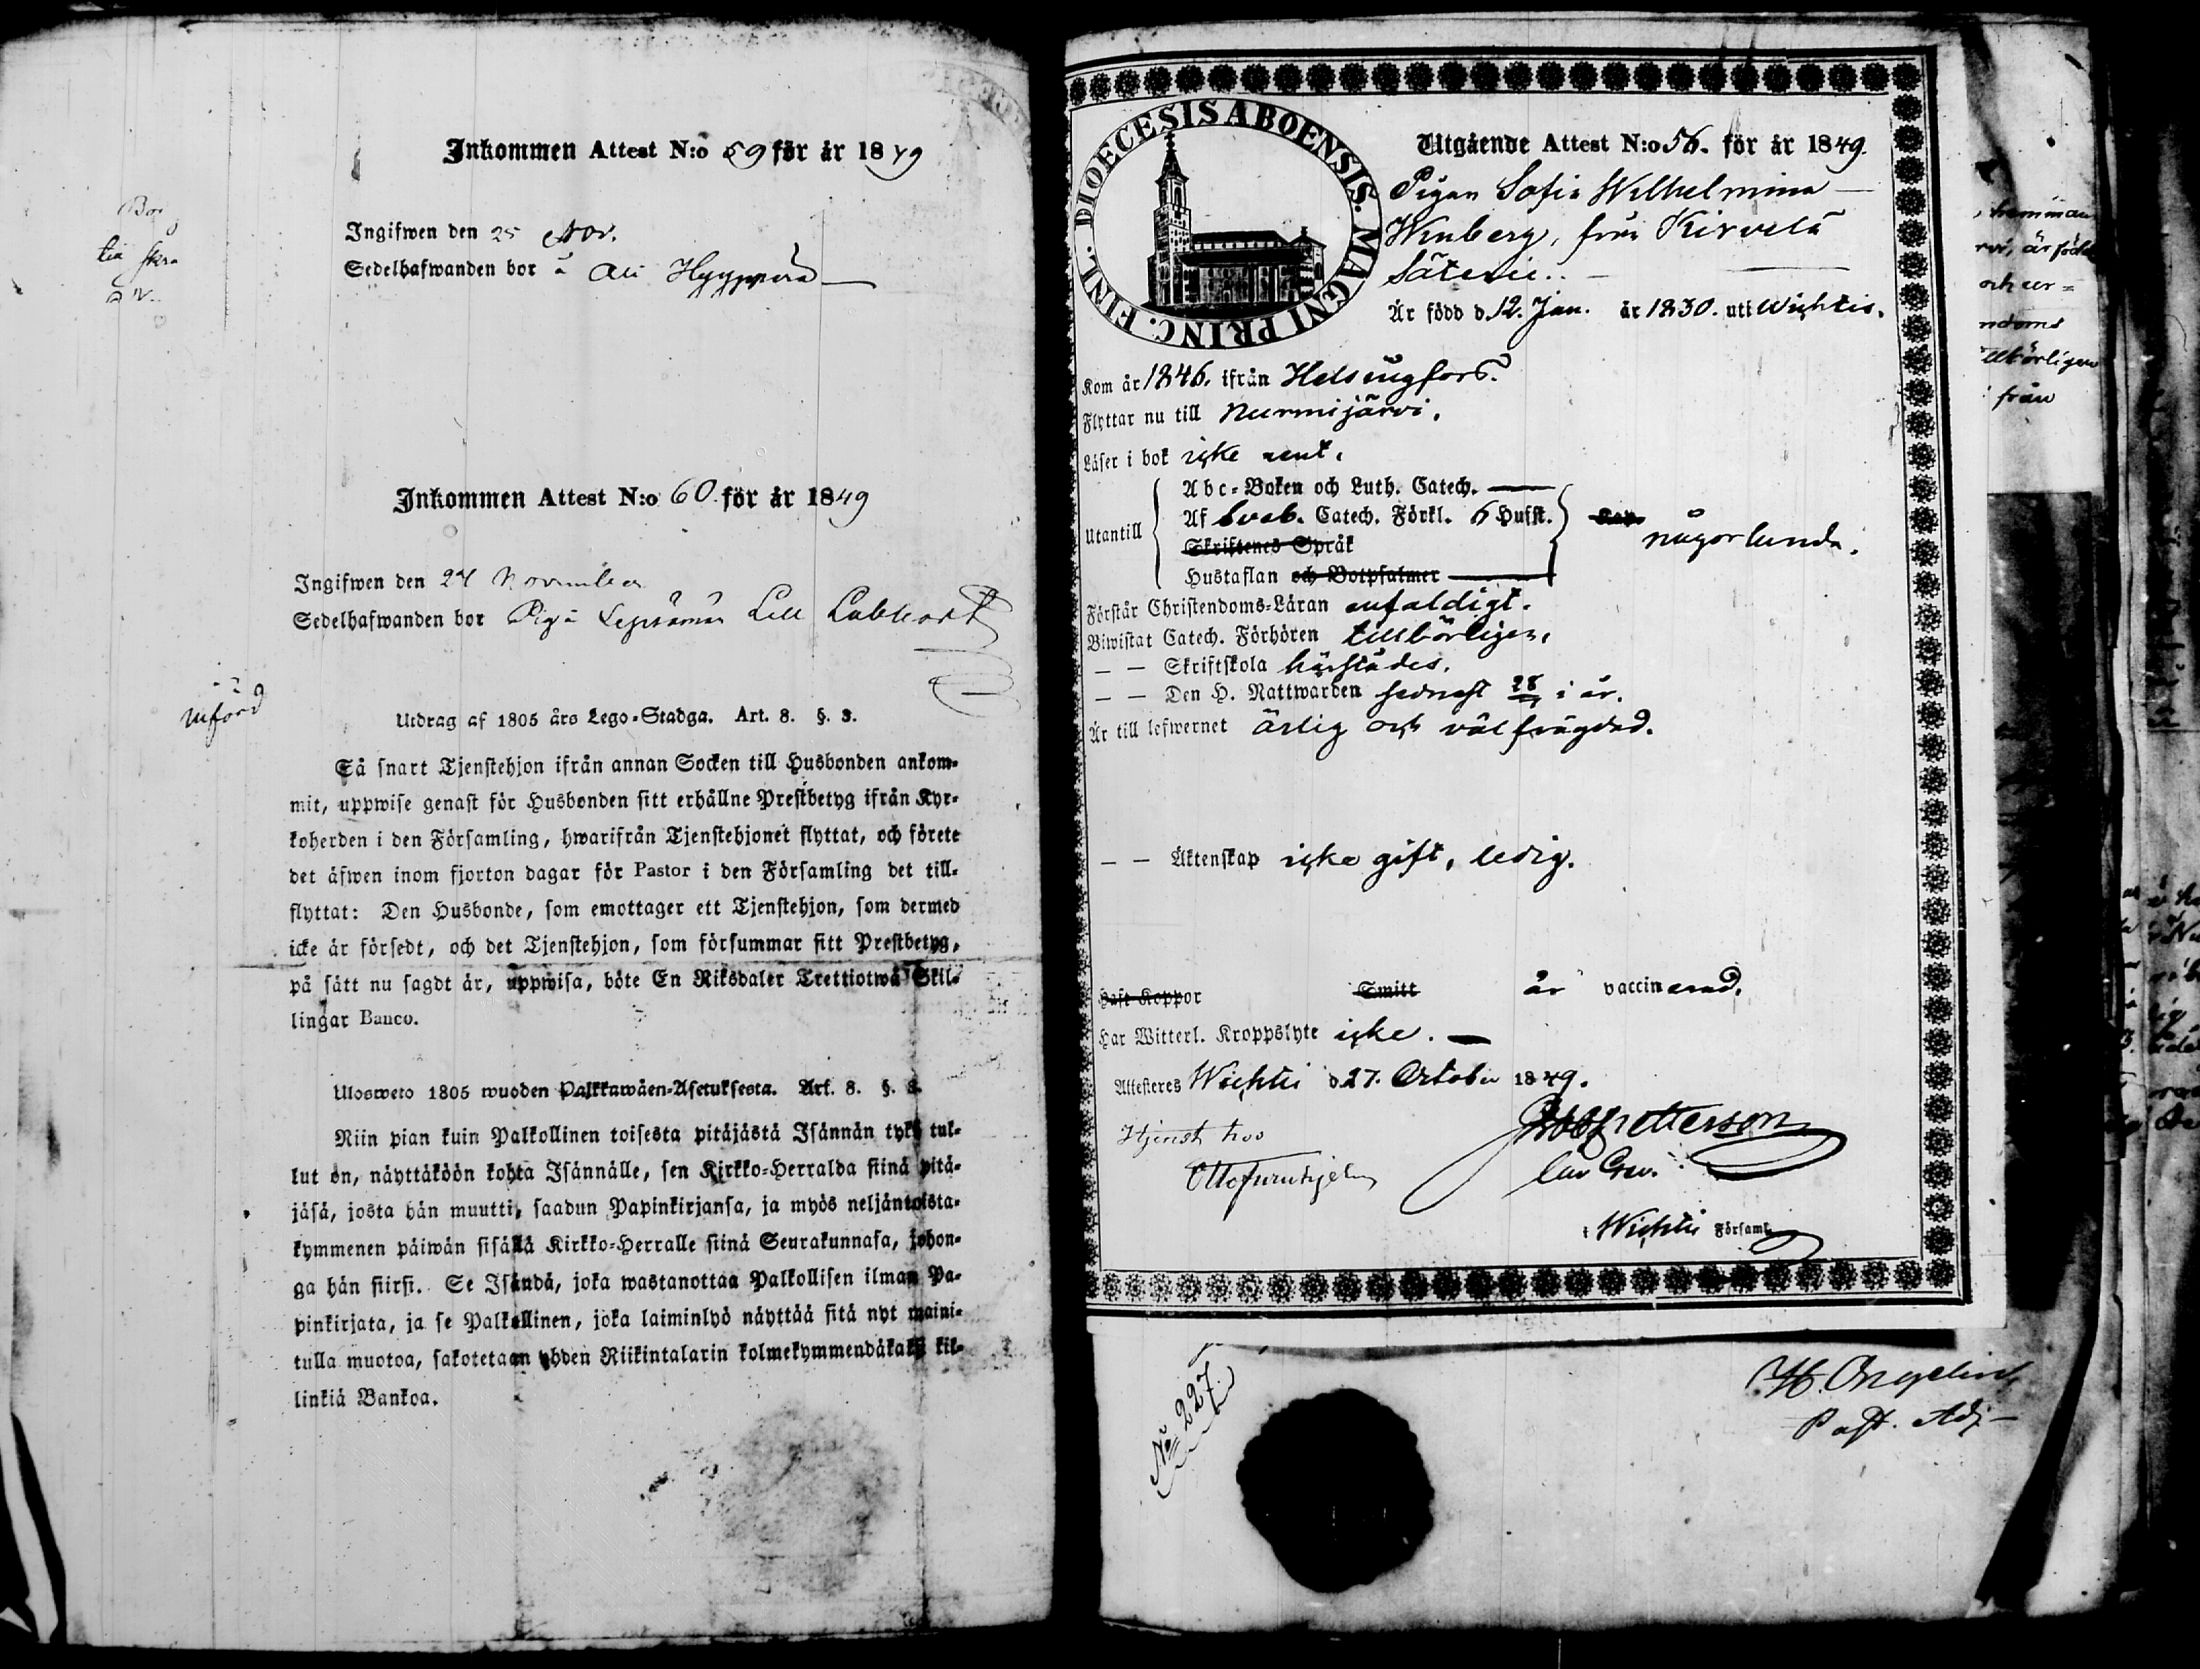 Inkommen Attest N:o 59 för år 1849
Ingifwen den 25 Nov.
Sedelhafwanden bor å Ali Hyyppärä
Inkommen Attest N:o 60. för år 1849
Ingifwen den 24 November
Sedelhafwanden bor
införd
Utdrag af 1805 års Lego-Stadga. Art. 8. §. 3.
Så snart Tjenstehjon ifrån annan Socken till Husbonden ankom-
mit, uppwise genast för Husbonden sitt erhållne Prestbetyg ifrån Kyr-
koherden i den Församling, hwarifrån Tjenstehjonet flyttat, och förete
det äfwen inom fjorton dagar för Pastor i den Församling det till-
flyttat: Den Husbonde, som emottager ett Tjenstehjon, som dermed
icke är försedt, och det Tjenstehjon, som försummar sitt Prestbetyg,
på sätt nu sagdt är, uppwisa, böte En Riksdaler Trettiotwå Skil-
lingar Banco.
Ulosweto 1805 wuoden Palkkawäen-Asetuksesta. Art. 8. §. 3.
Niin pian kuin Palkollinen toisesta pitäjästä Isännän tykö tul-
lut on, näyttäköön kohta Isännälle, sen Kirkko-Herralda siinä pitä-
jäsä, josta hän muutti, saadun Papinkirjansa, ja myös neljäntoista-
kymmenen päiwän sisällä Kirkko-Herralle siinä Seurakunnasa, johon-
ga hän siirsi. Se Isändä, joka wastanottaa Palkollisen ilman Pa-
pinkirjata, ja se Palkollinen, joka laiminlyö näyttää sitä nyt maini-
tulla muotoa, sakotetaan yhden Riikintalarin kolmekymmendäkaksi kil-
linkiä Bankoa.
DIOECESIS ABOENSIS. MAGNI PRINC. FINL.
Utgående Attest N:o 56. för år 1849.
Pigan Sofia Wilhelmina
Winberg, från Kirvelä
Säterie.
Är född d. 12. Jan. år 1830. uti Wichtis.
Kom år 1846. ifrån Helsingfors.
Flyttar nu till Nurmijärvi.
Läser i bok icke rent.
Utantill
Abc-Boken och Luth. Catech.
Af Sveb. Catech. Förkl. 6 Hufst.
Skriftenes Språk
Hustaflan och Botpsalmer
någorlunda.
Förstår Christendoms-Läran enfaldigt.
Biwistat Catech. Förhören tillbörligen.
— — Skriftskola härstädes.
— — Den H. Nattwarden sednast i år.
Är till lefwernet ärlig och välfrägdad.
— — Äktenskap icke gift, ledig.
Haft Koppor Smitt är vaccinerad.
Har Witterl. Kroppslyte icke.
Attesteras Wichtis d 27. October 1849.
Petterson
Otto Furuhjelm
i Wichtis Församl.
No 227.
Past. Adj.
hemman
är född
och
ndoms
tillbörligen
från